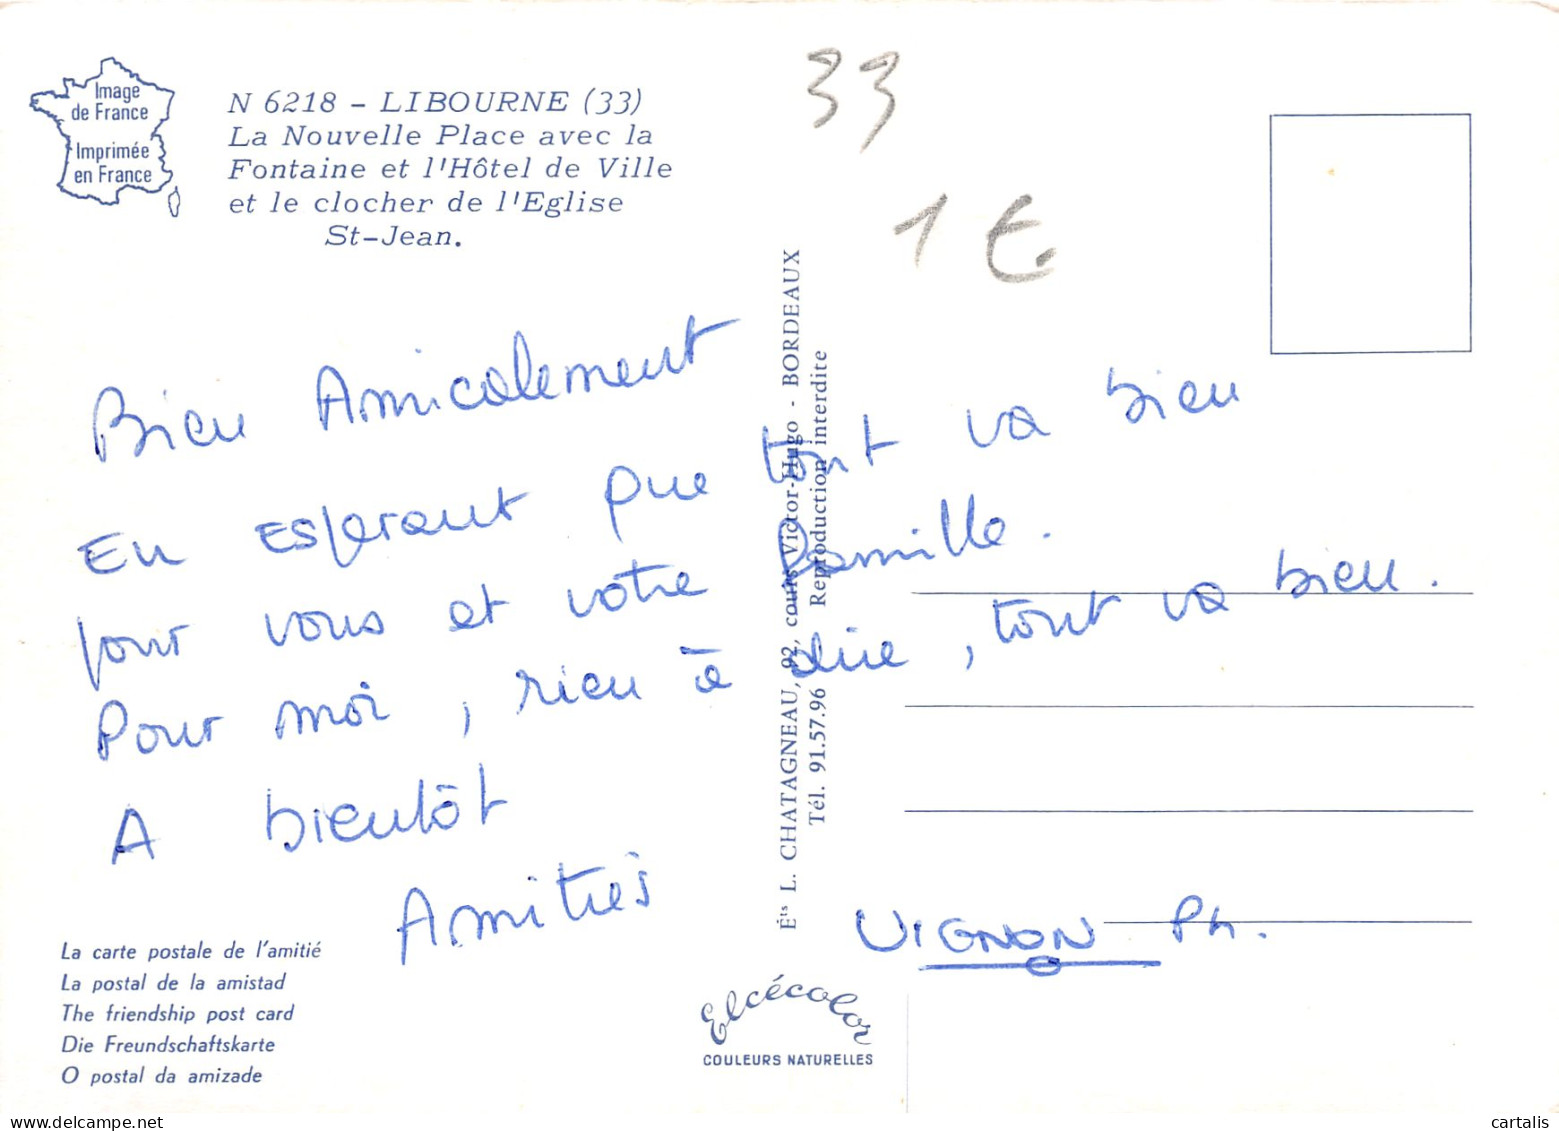 Image
de France
Imprimée
en France
N 6218 - LIBOURNE (33)
La Nouvelle Place avec la
Fontaine et l'Hôtel de Ville
et le clocher de l'Eglise
St-Jean.
33
1 €.
Bien Amicalement
En esperant que tout va bien
pour vous et votre famille.
Pour moi, rien à dire, tout va bien.
A bientôt
Amitiés
VIGNON Ph.
Éts L. CHATAGNEAU, 92, cours Victor-Hugo - BORDEAUX
Tél. 91.57.96 Reproduction interdite
La carte postale de l'amitié
La postal de la amistad
The friendship post card
Die Freundschaftskarte
O postal da amizade
Elcécolor
COULEURS NATURELLES
cartalis